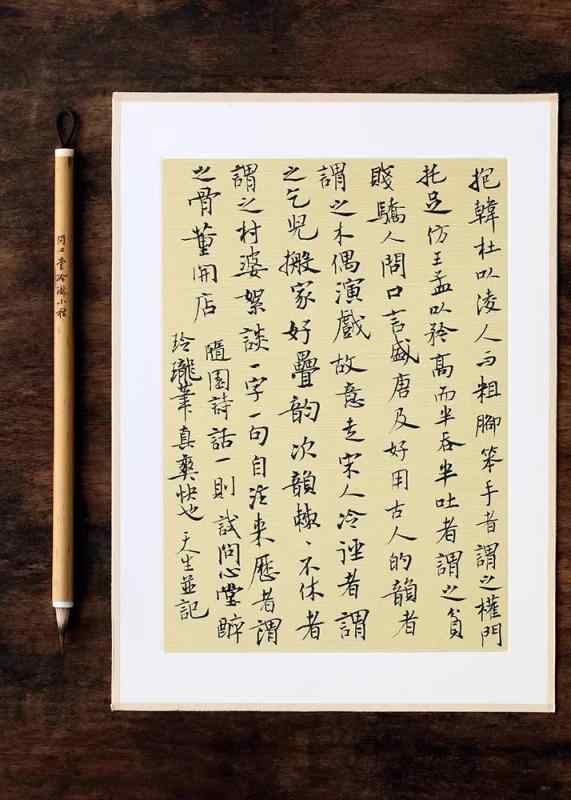 抱韓杜以凌人而粗腳笨手者謂之權門
托足仿王孟以矜高而半吞半吐者謂之貧
賤驕人開口言盛唐及好用古人的韻者
謂之木偶演戲故意走宋人冷逕者謂
之乞兒搬家好疊韵次韻棘〻不休者
謂之村婆絮談一字一句自注來歷者謂
之骨董開店
隨園詩話一則 試問心堂醉
玲瓏筆真爽快也 天生並記